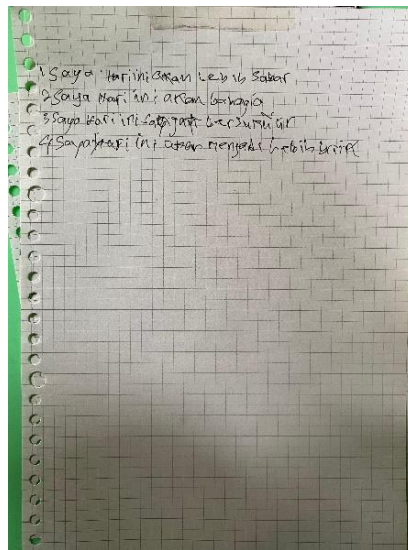 1 Saya Hari ini akan Lebih Sabar
2 Saya Hari ini akan bahagia
3 Saya Hari ini bersyukur
4 Saya Hari ini akan menjadi Lebih baik